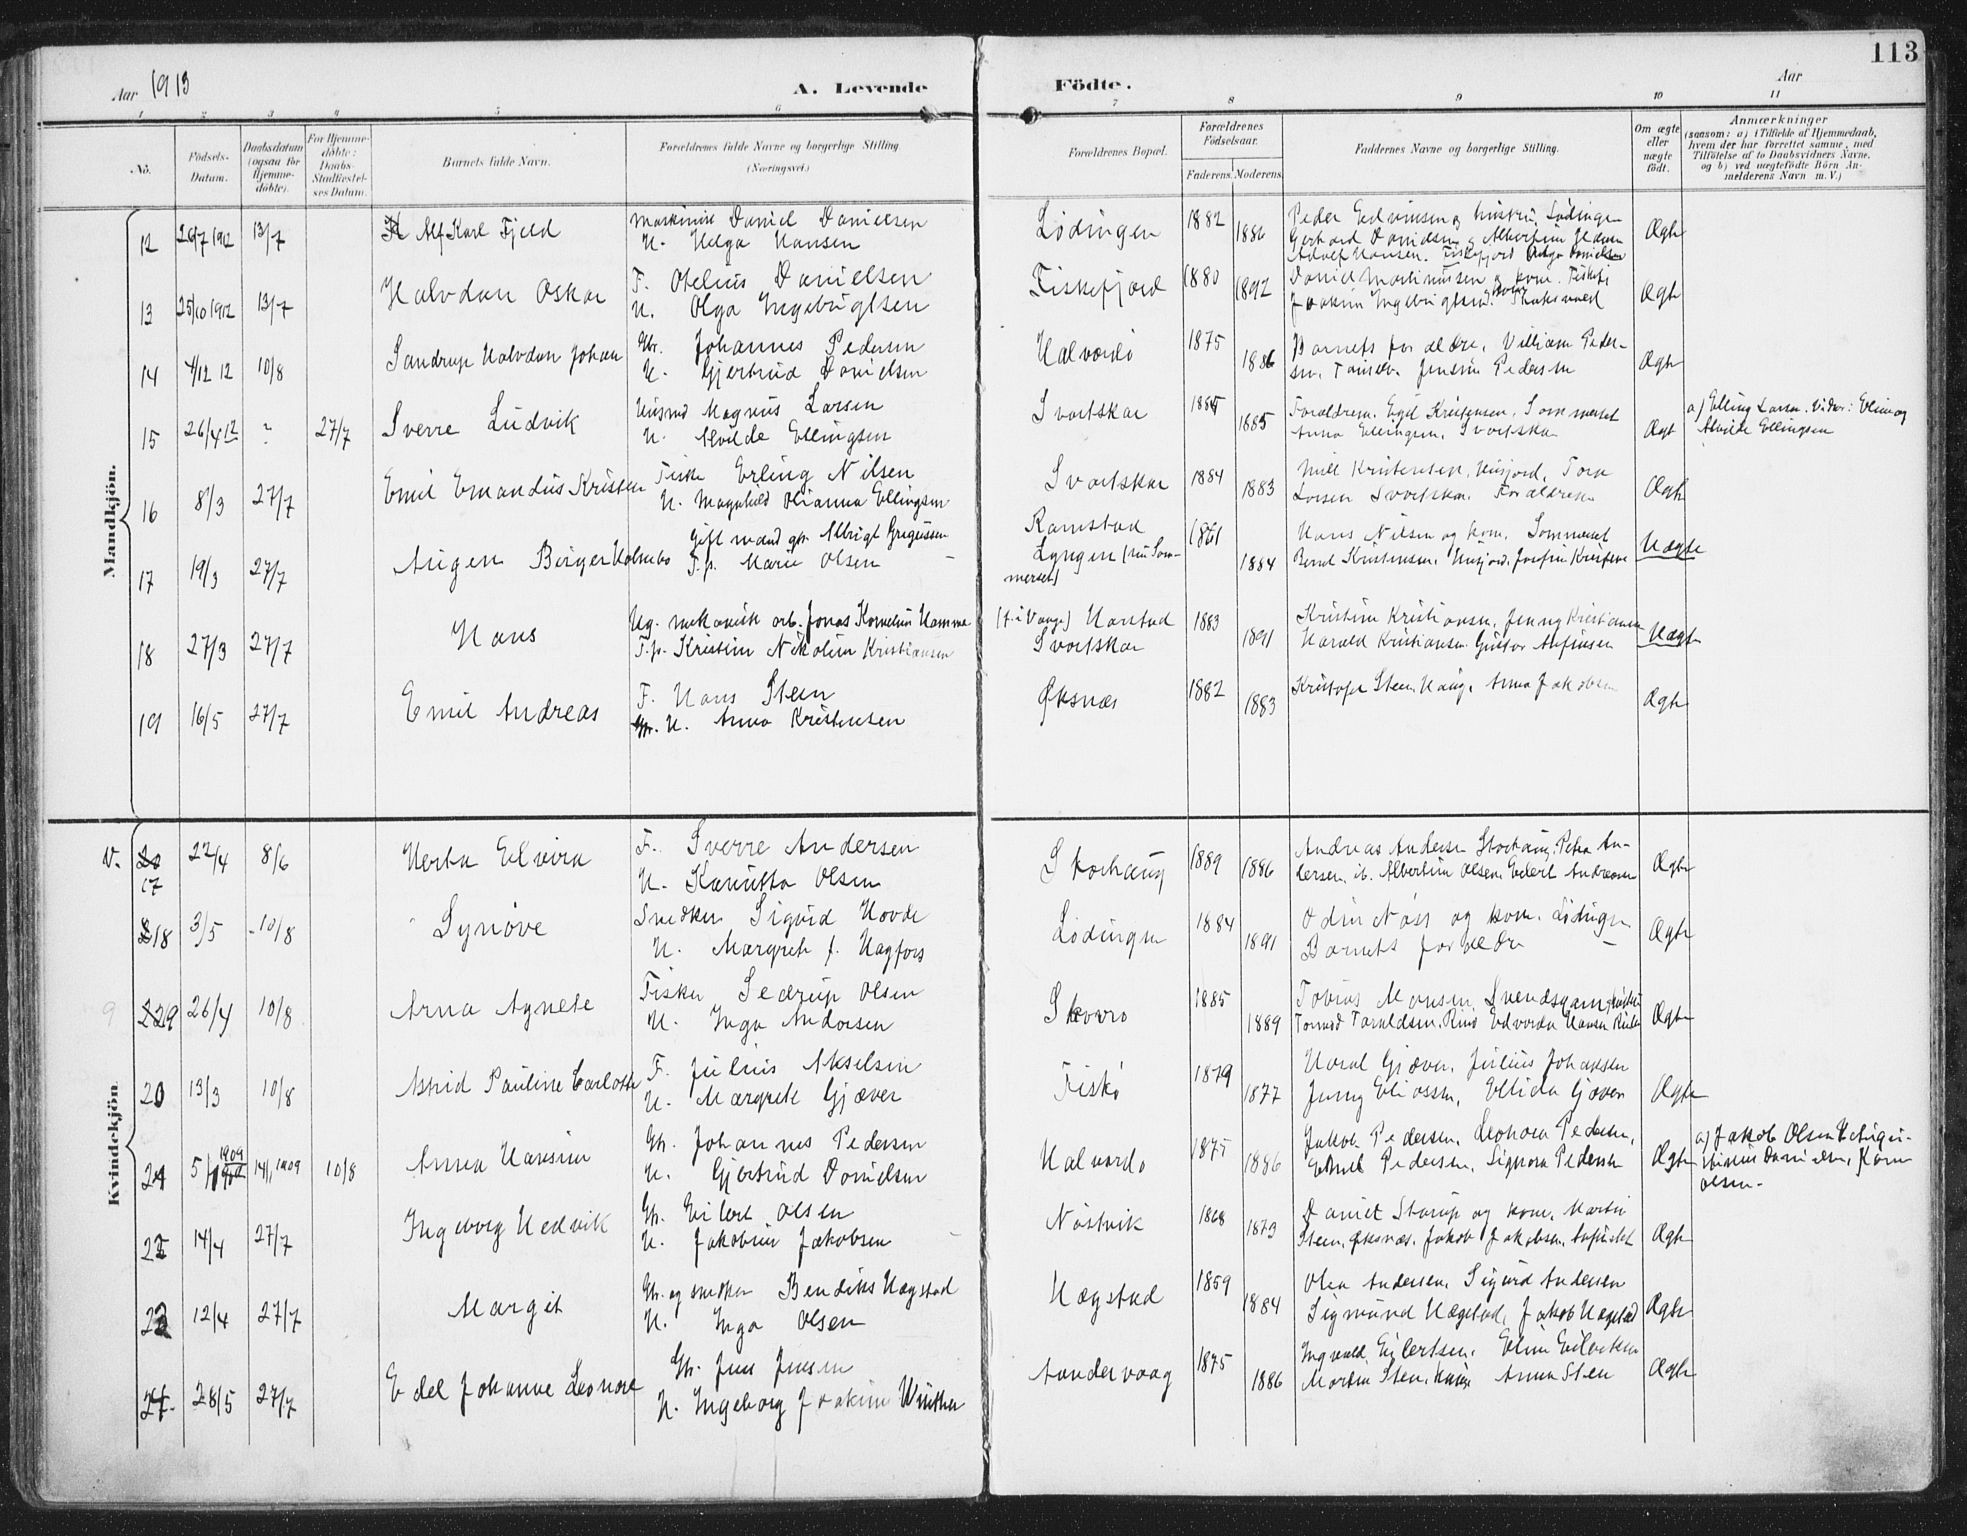 113
Aar 1913
A. Levende
Födte.
Aar
1 2 3 4 5 6 7 8 9 10 11
No.
Födsels-Datum.
Daabsdatum (ogsaa for Hjemme-döbte).
For Hjemme-döbte: Daabs-Stadfæstel-ses Datum.
Barnets fulde Navn.
Forældrenes fulde Navne og borgerlige Stilling. (Næringsvei.)
Forældrenes Bopæl.
Forældrenes Födselsaar.
Faderens. Moderens.
Faddernes Navne og borgerlige Stilling.
Om ægte eller uægte födt.
Anmærkninger
(saasom: a) i Tilfælde af Hjemmedaab, hvem der har forrettet samme, med Tilföielse af to Daabsvidners Navne, og b) ved uægtefödte Börn Anmelderens Navn m. V.)
Mandkjön.
12 26/7 1912 13/7 Alf Karl Fjeld
Maskinist Daniel Danielsen
H. Helga Hansen
Lødingen 1882 1886
Peder Edvinsen og hustru, Lødingen
Ægte
13 25/10 1912 13/7 Halvdan Oskar
F. Otelius Danielsen
H. Olga Ingebrigtsen
Fiskefjord 1880 1892
Daniel Martinussen og kone. Fiskefj
Ægte
14 4/12 12 10/8 Sandrup Halvdan Johan
Gbr. Johannes Pedersen
H. Gjertrud Danielsen
Halvardø 1875 1886
Barnets forældre, Villiam Peder-
sen, Jensine Pedersen
Ægte
15 26/4 12 ? 27/7 Sverre Ludvik
Husmd Magnus Larsen
H. Alvilde Ellingsen
Svartskar 1885
Forældrene, Egil Kristensen, Sommerset
Anna Ellingsen, Svartskar
Ægt
a) Elling Larsen. Vidner: Eline og
Alvilde Ellingsen
16 8/3 27/7 Emil Emandus Kristen
Fisker Erling Nilsen
H. Magnhild Olianna Ellingsen
Svartskar 1884 1883
Larsen Svartskar. Forældrene
Ægte
17 19/3 27/7 Augen Birger Holmebo
Gift mand gbr. Albrigt Gregussen
F.p. Marie Olsen
Ramstad
Lyngen (nu Som-
merset)
1861 1884
Hans Nilsen og kone. Sommerset
Bernt Kristensen, Husjord, Josefine Kristensen
Uægte
18 27/3 27/7 Hans
Ug. mekanisk arb. Jonas Kornelius Hamma
F.p. Kristine Nikoline Kristiansen
Harstad
Svartskar 1883 1891
Kristine Kristiansen, Jenny Kristiansen
Harald Kristiansen Gustav Alfinsen
Uægte
19 16/5 27/7 Emil Andreas
F. Hans Steen
H. Anna Kristensen
Øksnæs 1882 1883
Kristofer Steen, Haug, Anna Jakobsen
Ægte
Kvindekjön.
N. 17 22/4 8/6 Herta Elvira
F. Sverre Andersen
H. Kanutta Olsen
Skorhaug 1889 1886
Andreas Andersen Storhaug, Petra An-
dersen, ib. Albertine Olsen, Edert Andreasen
Ægte
18 3/5 10/8 Synøve
Snedker Sigurd Hovde
H. Margrete f. Hagfors
Lødingen 1884 1891
Odin Næss og kone. Lødingen
Barnets forældre
Ægte
9 26/4 10/8 Arna Agnete
Fisker Sedrup Olsen
H. Inga Andorsen
Skvarø 1885 1889
Tobias Monsen, Svendsgam,
Tormod Taraldsen,
Ægte
20 13/3 10/8 Astrid Pauline Carlotte
F. Julius Akselsen
H. Margrete Gjæver
Fiskø 1879 1877
Haral Gjæver, Julius Johansen
Jenny Eliassen, Ellida Gjæver
Ægte
21 1909 14/1 1909 10/8 Anna Hansine
Gbr. Johannes Pedersen
H. Gjertrud Danielsen
Halvardø 1875 1886
Jakob Pedersen, Leonora Pedersen,
Emil Pedersen, Signora Pedersen
Ægte
a) Jakob Olsen
Danielsen,
Olsen.
22 14/4 27/7 Ingeborg Hedvik
Gbr. Eilert Olsen
H. Jakobine Jakobsen
Nøstvik 1868 1873
Daniel Storup og kone, Martin
Steen, Øksnæs, Jakob Jakobsen,
Ægte
23 12/4 27/7 Margit
Gbr. og snedker Bendiks Hægstad
H. Inga Olsen
Hægstad 1859 1884
Olea Andersen, Sigurd Andersen
Sigmund Hægstad, Jakob Hægstad
Ægte
24 28/5 27/7 Edel Johanne Leonore
Gbr. Jens Jensen
H. Ingeborg Joakime Winther
Sandervaag 1875 1886
Ingvald Eilertsen, Eline Eilertsen
Martin Steen, Haug Anna Steen
Ægte